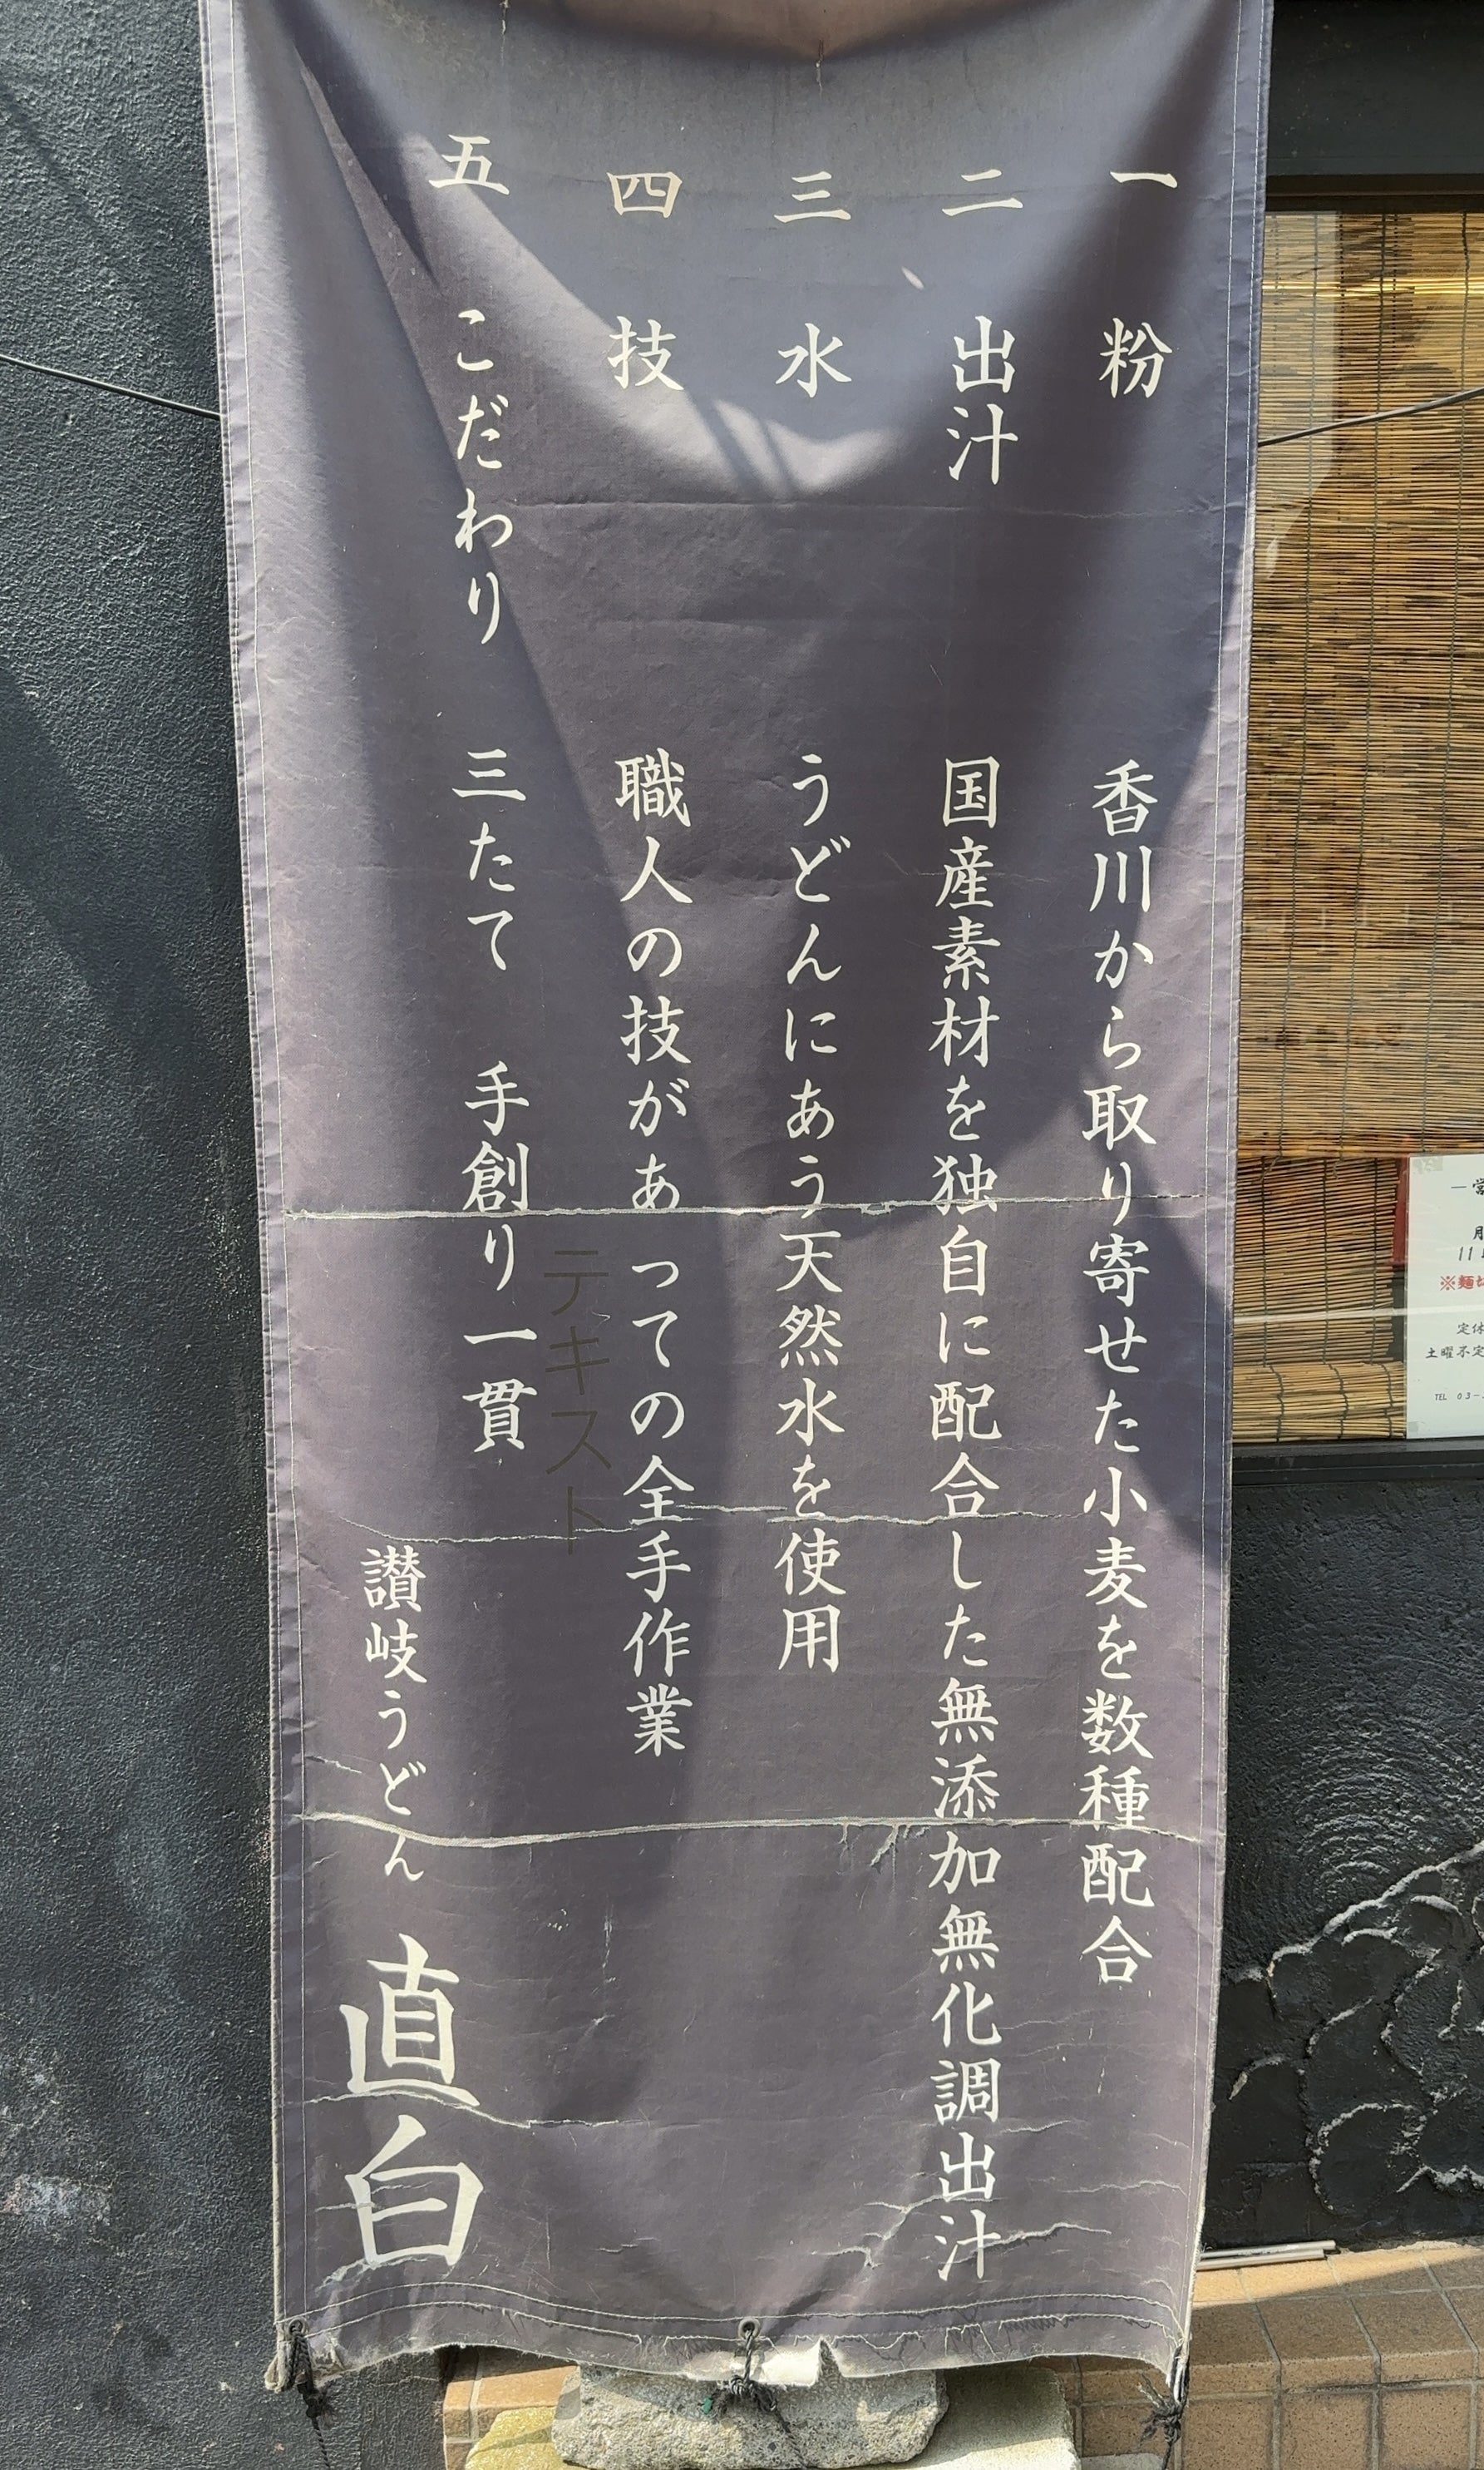 一 粉 香川から取り寄せた小麦を数種配合
二 出汁 国産素材を独自に配合した無添加無化調出汁
三 水 うどんにあう天然水を使用
四 技 職人の技があっての全手作業
テキスト
五 こだわり 三たて 手創り一貫
讃岐うどん 直白
※麺
定休
土曜不定
TEL 03-